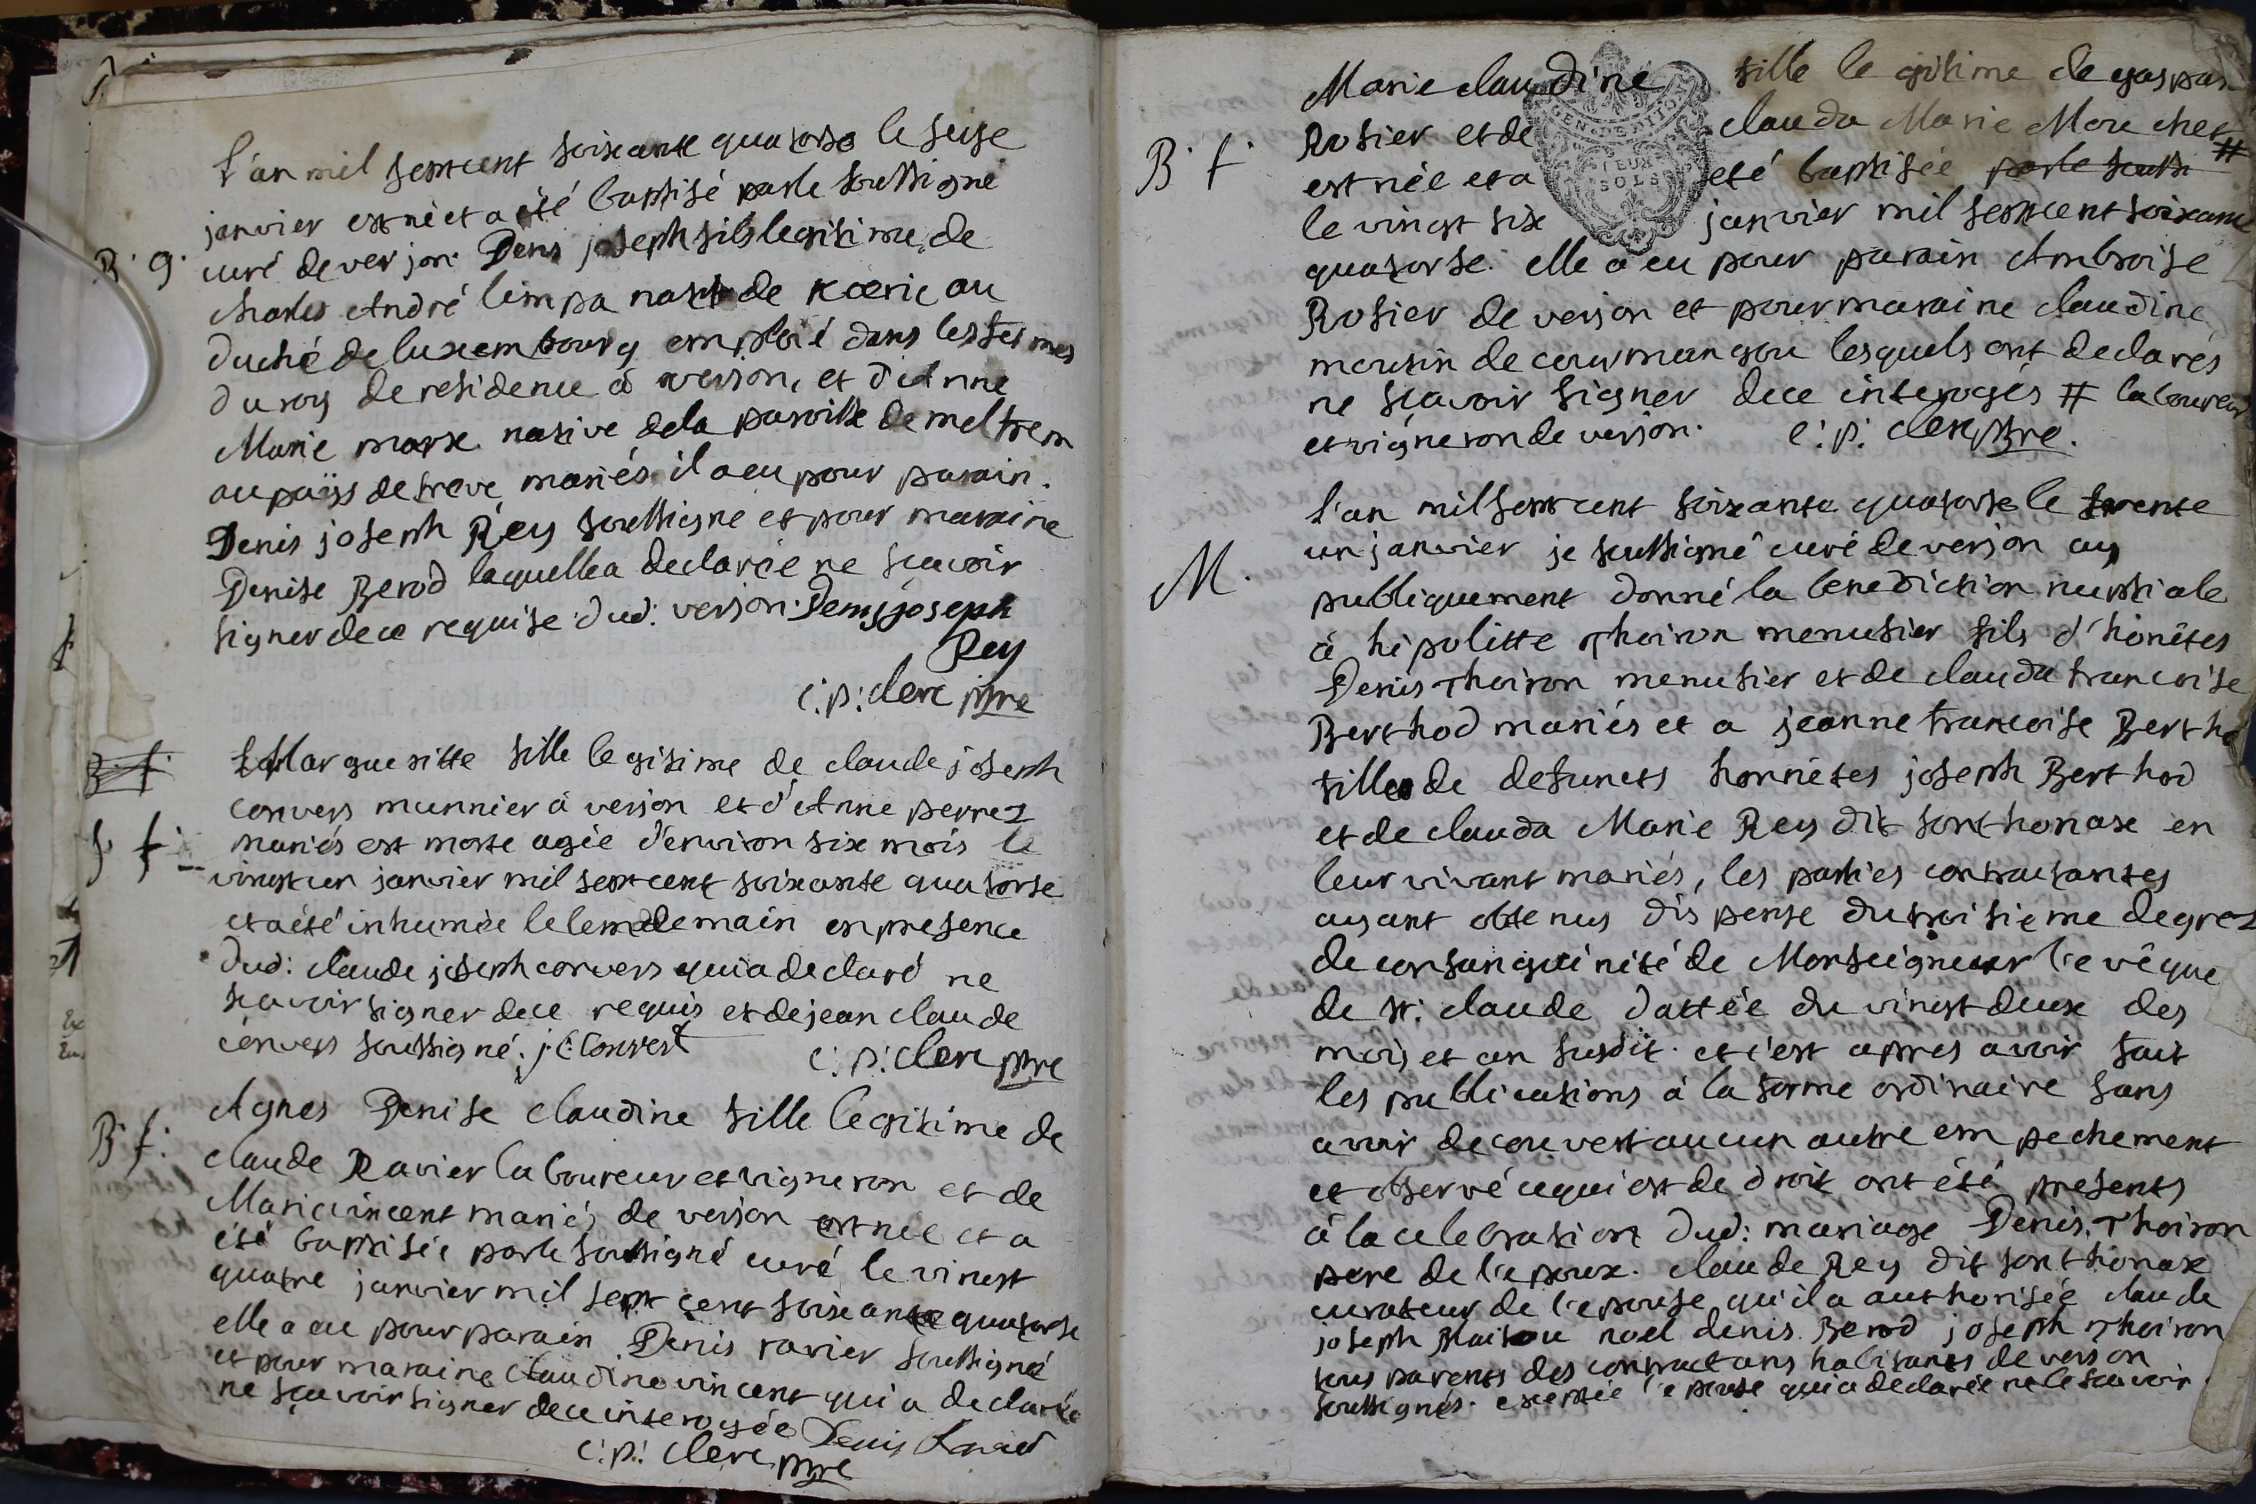 L'an mil sept cent soixante quatorse le seise
janvier est né et a été baptisé par le soussigné
B. g. curé de verjon Denis joseph fils legitime de
charles André limpa natif de Kœric au
duché de luxembourg emploié dans les fermes
du roy de residence à verjon, et d'Anne
Marie marx native de la paroisse de meltrem
au païs de treve mariés il a eu pour parain
Denis joseph Rey soussigné et pour maraine
Denise Berod laquelle a declarée ne scavoir
signer de ce requise dud: verjon. Denis joseph
Rey
c: p: clerc ptre
Margueritte fille legitime de claude joseph
B. f.
convers munnier à verjon et d'Anne perret
S. f. mariés est morte agée d'environ six mois le
vingt un janvier mil sept cent soixante quatorse
et a été inhumée le lendemain en presence
dud: claude joseph convers qui a declaré ne
scavoir signer de ce requis et de jean claude
convers soussigné. j C Convert c: p: clerc ptre
Agnes Denise claudine fille legitime de
B. f. claude Ravier laboureur et vigneron et de
Marie vincent mariés de verjon est née et a
été baptisée par le soussigné curé le vingt
quatre janvier mil sept cent soixante quatorse
elle a eu pour parain Denis ravier soussigné
et pour maraine claudine vincent qui a declarée
ne scavoir signer de ce interogée Denis Ravier
c: p: clerc ptre
Marie claudine fille legitime de gaspar
Rosier et de clauda Marie Mouchet #
B. f. est née et a eté baptisée par le soussi
le vingt six janvier mil sept cent soixante
quatorse. elle a eu pour parain Ambroise
Rosier de verjon et pour maraine claudine
mousin de courmangou lesquels ont declarés
ne scavoir signer de ce interogés # laboureur
et vigneron de verjon. c: p: clerc ptre.
L'an mil sept cent soixante quatorse le trente
un janvier je soussigné curé de verjon ay
M. publiquement donné la benediction nuptiale
à hipolitte Thoiron menusier fils d'honêtes
Denis Thoiron menusier et de clauda francoise
Berthod mariés et a jeanne francoise Bertho
fille de defuncts honnêtes joseph Berthod
et de clauda Marie Rey dit sonthonax en
leur vivant mariés, les parties contractantes
ayant obtenus dispense du troisieme degrez
de consanguinité de Monseigneur l'evêque
de st: claude dattée du vingt deux des
mois et an susdit. et c'est apres avoir fait
les publications à la forme ordinaire sans
avoir decouvert aucun autre empechement
et observé ce qui est de droit ont été presents
à la celebration dud: mariage Denis Thoiron
pere de l'epoux. claude Rey dit sonthonax
curateur de l'epouse qu'il a authorisée claude
joseph noel denis Berod joseph Thoiron
tous parents des contractans habitants de verjon
soussignés. exceptée l'epouse qui a declarée ne le scavoir.